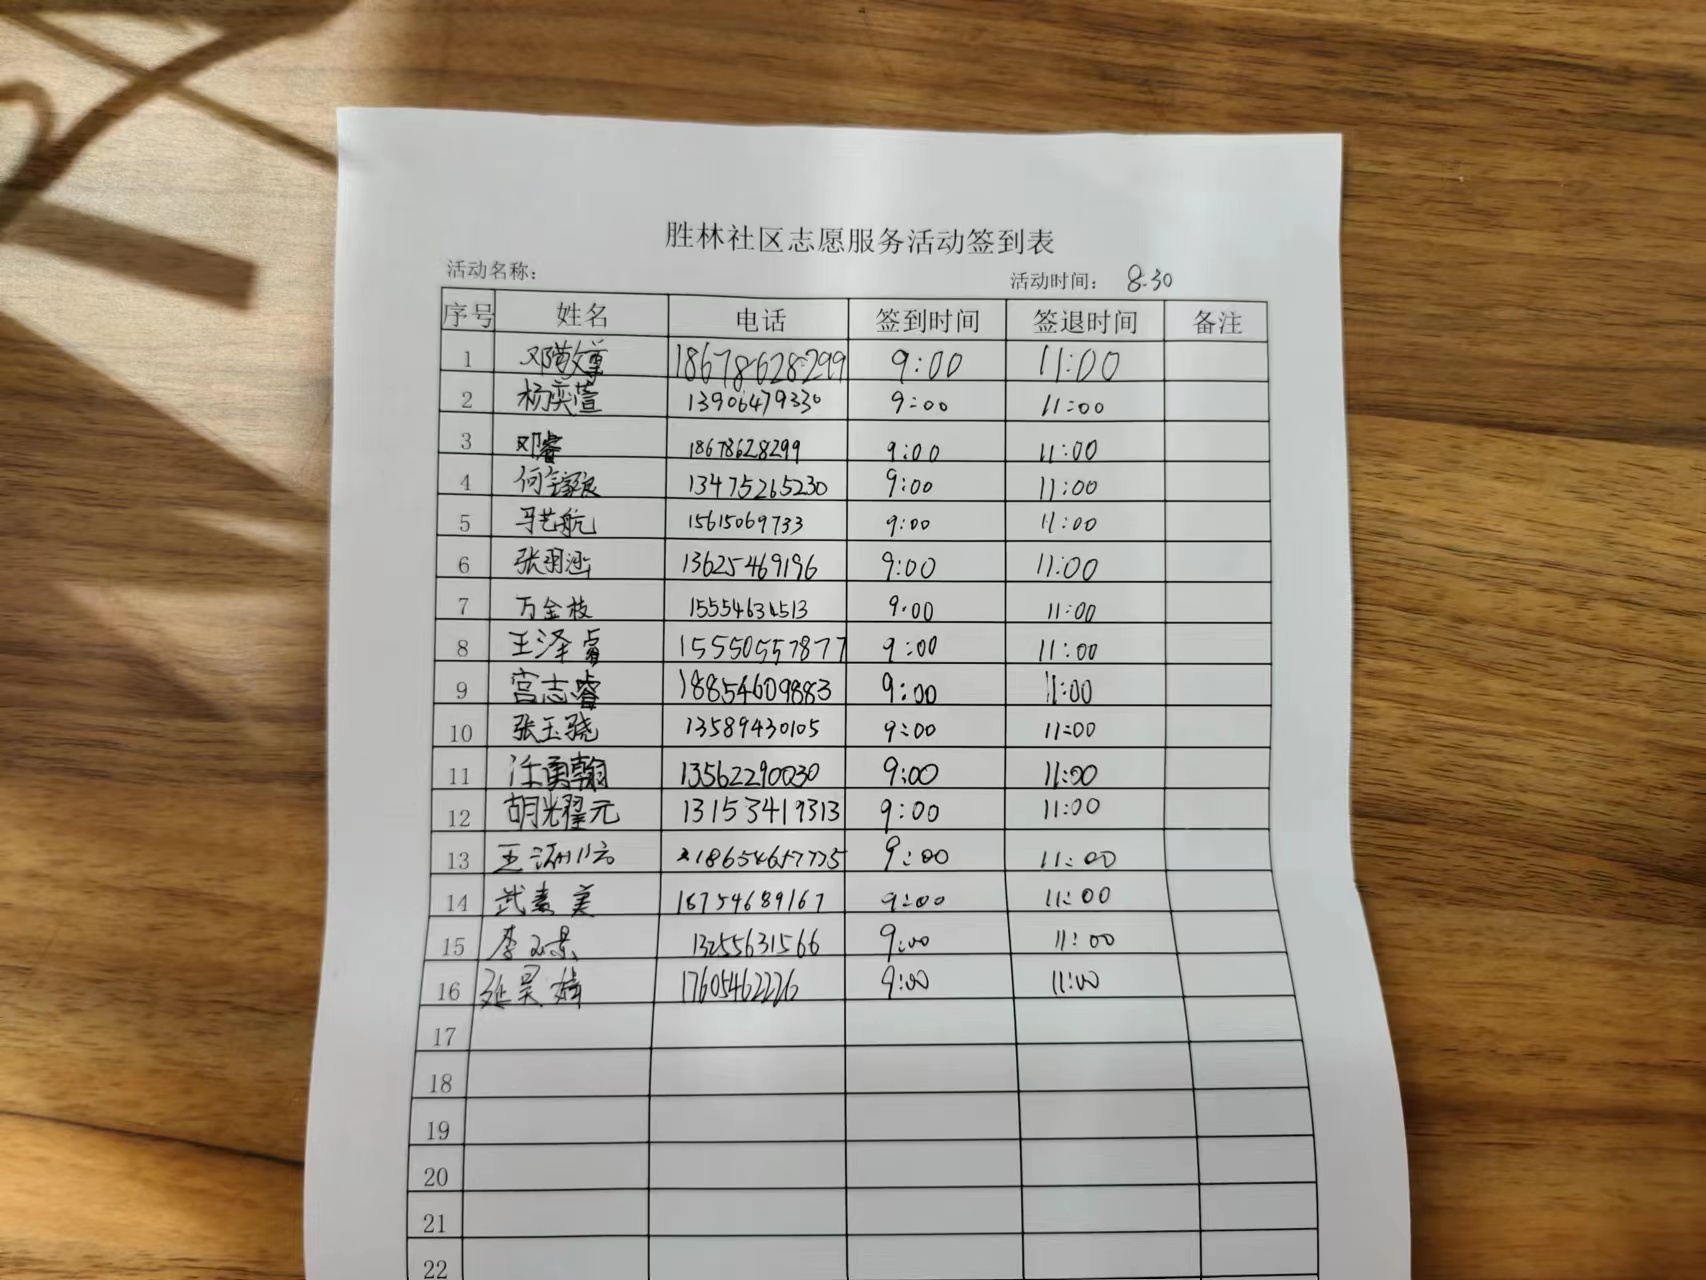 胜林社区志愿服务活动签到表
活动名称： 活动时间： 8.30
序号 姓名 电话 签到时间 签退时间 备注
1 邓敬萱 18678628299 9:00 11:00
2 杨奕萱 13906479330 9:00 11:00
3 邓睿 18678628299 9:00 11:00
4 何 13475265230 9:00 11:00
5 马艺航 15615069733 9:00 11:00
6 张羽涵 13625469196 9:00 11:00
7 万金枝 15554631513 9:00 11:00
8 王泽睿 15550557877 9:00 11:00
9 宫志睿 18854609883 9:00 11:00
10 张玉骁 13589430105 9:00 11:00
11 汪勇翰 13562290030 9:00 11:00
12 胡光耀元 13153419313 9:00 11:00
13 王 9:00 11:00
14 武素美 18754689167 9:00 11:00
15 李 13255631566 9:00 11:00
16 17605462226 9:00 11:00
17
18
19
20
21
22